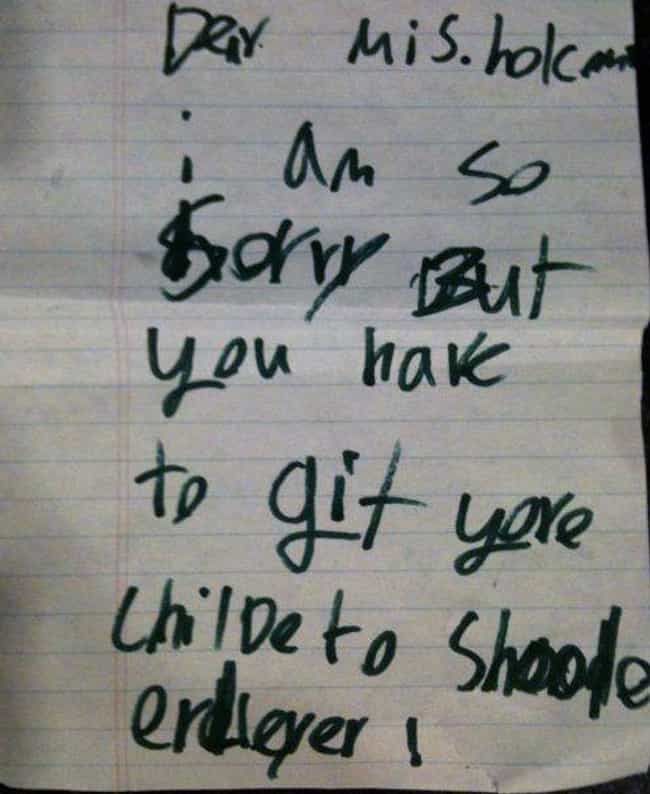 Dear Mis. holcmn
i am so
Sorry But
you have
to git yore
Childe to Shoole
erlleyer !